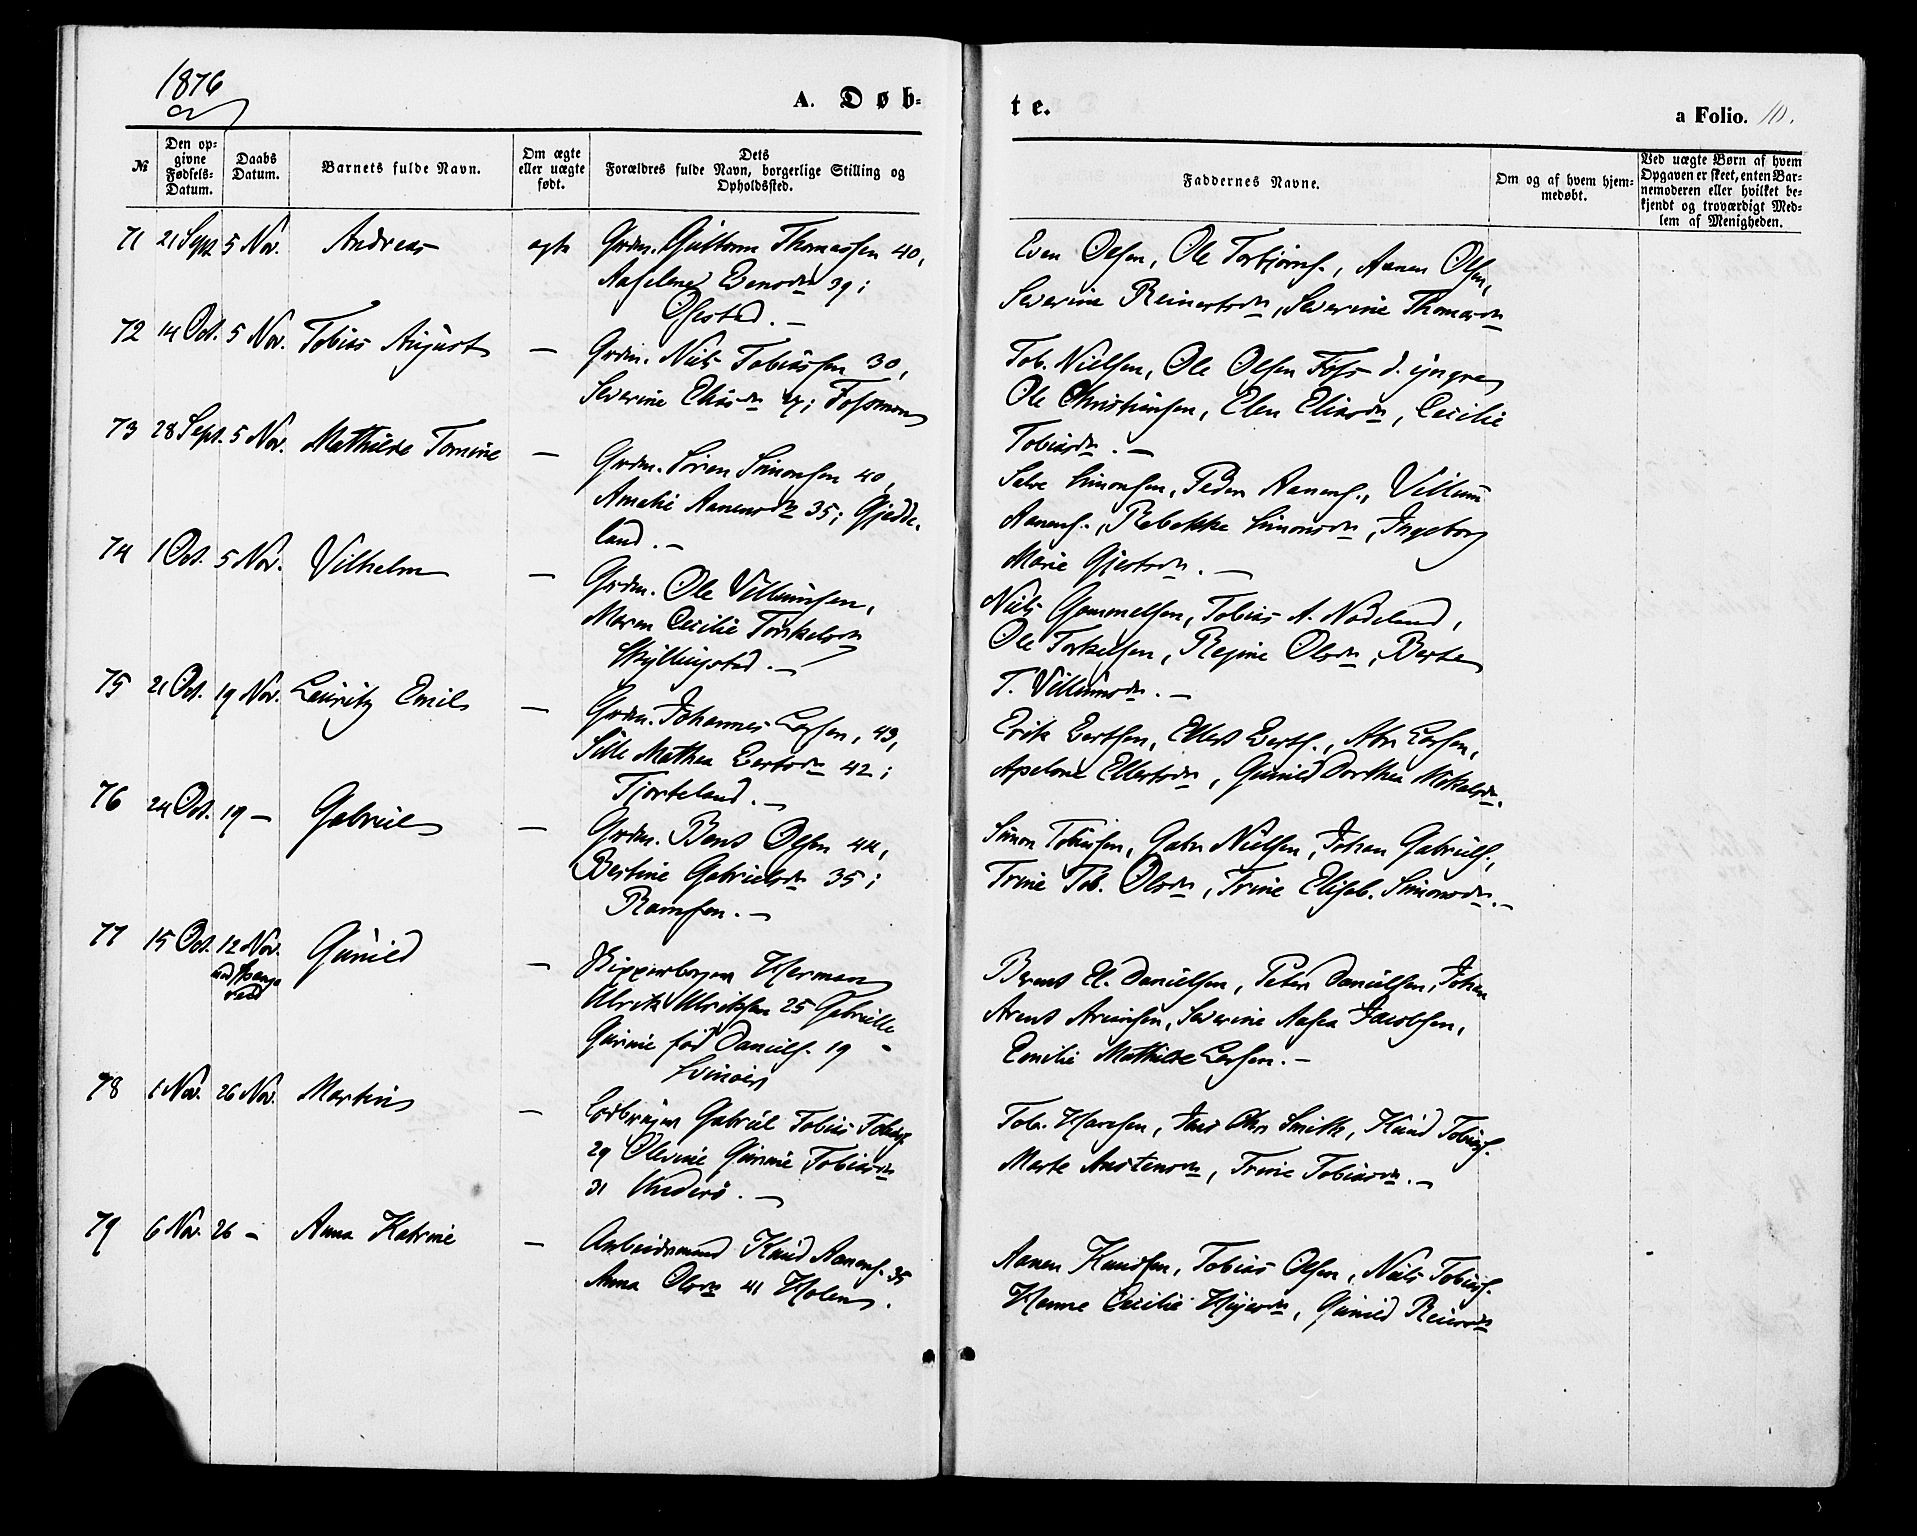 1876
A. Døb-
te.
a Folio. 10.
№
Den op-
givne
Fødsels-
Datum.
Daabs
Datum.
Barnets fulde Navn.
Om ægte
eller uægte
født.
Dets
Forældres fulde Navn, borgerlige Stilling og
Opholdssted.
Faddernes Navne.
Om og af hvem hjem-
medøbt.
Ved uægte Børn af hvem
Opgaven er skeet, enten Bar-
nemoderen eller hvilket be-
kjendt og troværdigt Med-
lem af Menigheden.
71 21 Sept. 5 Nov. Andreas ægte Grdm. Guttorm Thomassen 40,
Evensdr 39;
Even Olsen, Ole Torbjørns., Aanen Olsen,
Severine Reinertsdr, Severine Thomasdr
72 14 Oct. 5 Nov. Tobias August — Grdm. Niels Tobiassen 30,
Severine Eliasdr
Tob. Nielsen, Ole Olsen Foss d. yngre
Ole Christiansen, Elen Eliasdr, Cecilie
Tobiasdr. —
73 28 Sept. 5 Nov. Mathilde Tomine — Grdm. Søren Simonsen 40,
Amalie Aanensdr 35; Gjedde-
land. —
Salve Simonsen, Peder Aanens., Villum
Aanens., Rebekke Simonsdr, Ingeborg
Marie Gjertsdr. —
74 1 Oct. 5 Nov. Vilhelm — Grdm. Ole Villumsen,
Maren Cecilie Torkelsdr
Skyllingstad. —
Niels Gommelsen, Tobias A. Nodeland,
Ole Torkelsen, Regine Olsdr, Berte
T. Villumsdr. —
75 21 Oct. 19 Nov. Lauritz Emil — Grdm. Johannes Larsen, 43,
Sille Mathea Evertsdr 42;
Tjorteland. —
Erik Evertsen, Ellert Everts., Abr. Larsen,
Apelone Ellertsdr, Gunild Dorthea
76 24 Oct. 19 — Gabriel — Grdm. Bent Olsen 44,
Bertine Gabrielsdr 35;
Ramsen. —
Simon Tobiassen, Gabr. Nielsen, Johan Gabriels.,
Trine Tob. Olsdr, Trine Elisab. Simonsdr. —
77 15 Oct. 12 Nov. Gunild — Skipperborger Herman
Ulrik Ulriksen 25 Gabrielle
Gurine fød Daniels. 19 -
Svinøen
Bernt El. Danielsen, Peter Danielsen, Johan
Arent Arentsen, Severine Aasea Jacobsen,
Emilie Mathilde Larsen. —
78 1 Nov. 26 Nov. Martin — Gabriel Tobias Tobias.
29 Olevine Gurine Tobiasdr
31 Underø. —
Tob. Hansen, Jens Chr. Smith, Knud Tobias.
Marte Austensdr, Trine Tobiasdr. —
79 6 Nov. 26 — Anna Katrine — Arbeidsmand Knud Aanens. 35
Anna Olsdr 41 Holen.
Aanen Knudsen, Tobias Olsen, Niels Tobias.
Hanne Cecilie Gunild